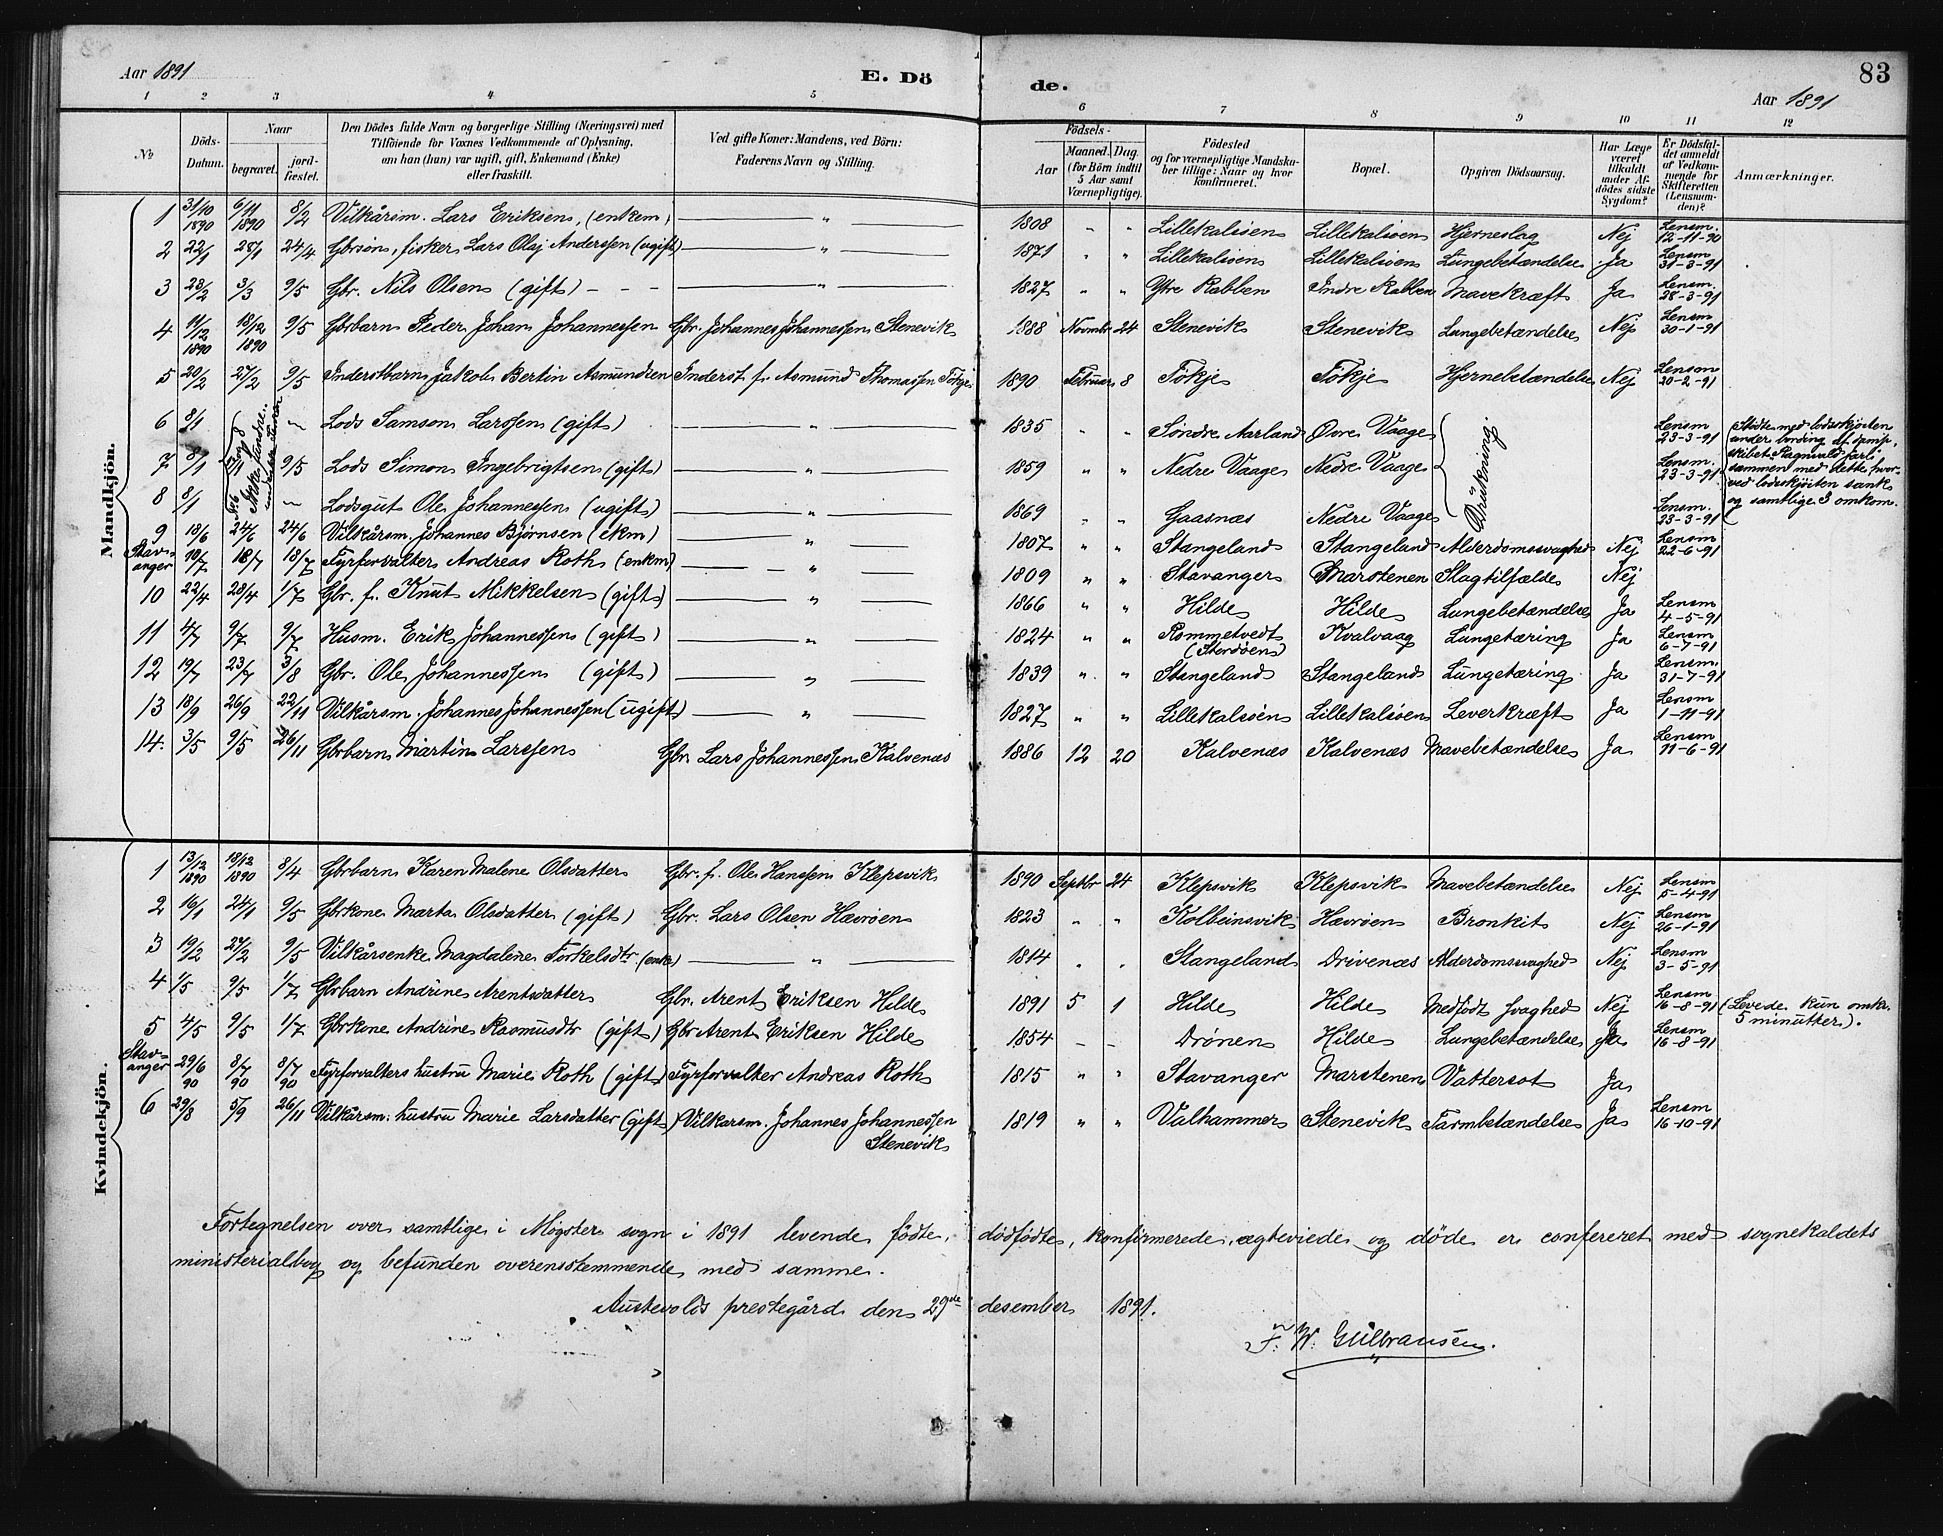 Aar 1891
E. Dö
de.
83
Aar 1891
1 2 3 4 5 6 7 8 9 10 11 12
No
Döds-Datum.
Naar
begravet.
jordfæstet.
Den Dödes fulde Navn og borgerlige Stilling (Næringsvei) med
Tilföiende for Voxnes Vedkommende af Oplysning,
om han (hun) var ugift, gift, Enkemand (Enke)
eller fraskilt.
Ved gifte Koner: Mandens, ved Börn:
Faderens Navn og Stilling.
Födsels-
Aar
Maaned. Dag.
(for Börn indtil
5 Aar samt
Værnepligtige).
Födested
og for værnepligtige Mandska-
ber tillige: Naar og hvor
konfirmeret.
Bopæl.
Opgiven Dödsaarsag.
Har Læge
været
tilkaldt
under Af-
dödes sidste
Sygdom?
Er Dödsfal-
det anmeldt
af Vedkom-
mende for
Skifteretten
(Lensman-
den)?
Anmærkninger.
Mandkjön.
1 31/10 1890 6/11 1890 8/2 Vilkårsm. Lars Eriksen, (enkem) — " — 1808 " " Lillekalsøen Lillekalsøen Hjerneslag Nej Lensm. 12-11-90
2 22/1 28/1 24/4 Gbrsøn, fisker Lars Olaj Anderssen (ugift) — " — 1871 " " Lillekalsøen Lillekalsøen Lungebetændelse Ja Lensm 31-3-91
3 23/2 3/3 9/5 Gbr. Nils Olsen (gift) — " — 1827 " " Ytre Rabben Indre Rabben Mavekræft Ja Lensm. 28-3-91
4 11/12 1890 18/12 1890 9/5 Gbrbarn Peder Johan Johannessen Gbr. Johannes Johannessen Stenevik 1888 Novmbr 24 Stenevik Stenevik Lungebetændelse Nej Lensm 30-1-91
5 20/2 27/2 9/5 Inderstbarn Jakob Bertin Asmundsen Inderst f. Asmund Thomassen Fokje 1890 Februar 8 Fokje Fokje Hjernebetændelse Nej Lensm 20-2-91
6 8/1 " Lods Samson Larssen (gift) — " — 1835 " " Søndre Aarland Øvre Vaage Lensm 23-3-91
7 8/1 9/5 Lods Simon Ingebrigtsen (gift) — " — 1859 " " Nedre Vaage Nedre Vaage Drukning Lensm. 23-3-91
8 8/1 " Lodsgut Ole Johannessen (ugift) — " — 1869 " " Gaasnæs Nedre Vaage Lensm. 23-3-91
(Stødte med lodsskjøiten
under bording af dpmp.
skibet Ragnvald Jarl
sammen med dette, hvor-
ved lodsskjøiten sank
og samtlige 3 omkom.
9 18/6 24/6 24/6 Vilkårsm. Johannes Bjørnsen (ekm) — " — 1807 " " Stangeland Stangeland Alderdomssvaghed Nej Lensm 22-6-91
Stav-anger 10/7 18/7 18/7 Fyrforvalter Andreas Roth (enkem) — " — 1809 " " Stavanger Marstenen Slagtilfælde Nej
10 22/4 28/4 1/7 Gbr. f. Knut Mikkelsen (gift) — " — 1866 " " Hilde Hilde Lungebetændelse Ja Lensm 4-5-91
11 4/7 9/7 9/7 Husm. Erik Johannessen (gift) — " — 1824 " " Rommetvedt (Stordøen) Kvalvaag Lungetæring Ja Lensm 6-7-91
12 19/7 23/7 3/8 Gbr. Ole Johannessen (gift) — " — 1839 " " Stangeland Stangeland Lungetæring Ja Lensm. 31-7-91
13 18/9 26/9 22/11 Vilkårsm. Johannes Johannessen (ugift) — " — 1827 " " Lillekalsøen Lillekalsøen Leverkræft Ja Lensm 1-11-91
14. 3/5 9/5 26/11 Gbrbarn Martin Larssen Gbr. Lars Johannessen Kalvenæs 1886 12 20 Kalvenæs Kalvenæs Mavebetændelse Ja Lensm 11-6-91
Kvindekjön.
1 13/12 1890 18/12 1890 8/4 Gbrbarn Karen Malene Olsdatter Gbr. f. Ole Hanssen Klepsvik 1890 Septbr 24 Klepsvik Klepsvik Mavebetændelse Nej Lensm 5-4-91
2 16/1 24/1 9/5 Gbrkone Marta Olsdatter (gift) Gbr. Lars Olsen Hævrøen 1823 " " Kolbeinsvik Hævrøen Bronkit Nej Lensm 26-1-91
3 19/2 27/2 9/5 Vilkårsenke Magdalene Torkelsdtr (enke) — " — 1814 " " Stangeland Drivenæs Alderdomssvaghed Nej Lensm 3-5-91
4 1/5 9/5 1/7 Gbrbarn Andrine Arentsdatter Gbr. Arent Eriksen Hilde 1891 5 1 Hilde Hilde Medfødt svaghed Nej Lensm 16-8-91 (Levede kun omkr.
5 minutter).
5 4/5 9/5 1/7 Gbrkone Andrine Rasmusdtr (gift) Gbr Arent Eriksen Hilde 1854 – – Drønen Hilde Lungebetændelse Ja Lensm 16-8-91
Stav-anger 29/6 90 8/7 90 8/7 90 Fyrforvalters hustru Marie Roth (gift) Fyrforvalter Andreas Roth 1815 " " Stavanger Marstenen Vattersot Ja
6 29/8 5/9 26/11 Vilkårsm. hustru Marie Larsdatter (gift) Vilkarsm. Johannes Johannessen Stenevik 1819 " " Valhammer Stenevik Tarmbetændelse Ja Lensm 16-10-91
Fortegnelsen over samtlige i Møgster sogn i 1891 levende fødte, dødfødte, konfirmerede, ægteviede og døde er confereret med sognekaldets
ministerialbog og befunden overensstemmende med samme.
Austevolds prestegård den 29de desember 1891.
F. W. Gulbransen.